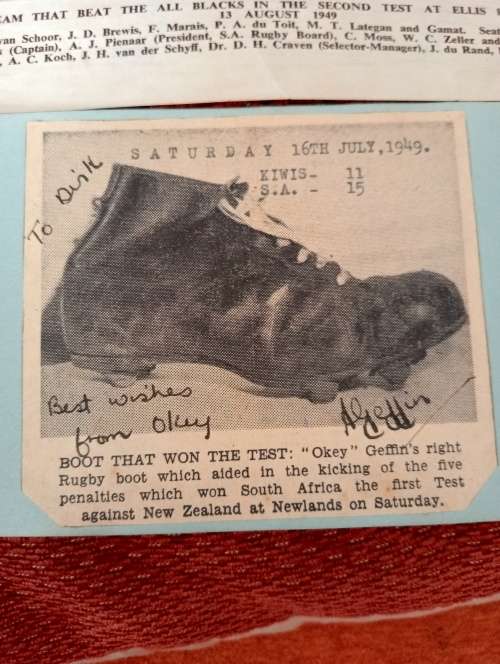 EAM THAT BEAT THE ALL BLACKS IN THE SECOND TEST AT ELLIS
13 AUGUST 1949
van Schoor, J. D. Brewis, F. Marais, P. A. du Toit, M. T. Lategan and Gamat. Seat
(Captain), A. J. Pienaar (President, S.A. Rugby Board), C. Moss, W. C. Zeller and
A. C. Koch, J. H. van der Schyff, Dr. D. H. Craven (Selector-Manager), J. du Rand,
SATURDAY 16TH JULY, 1949.
KIWIS- 11
S.A. - 15
To Dirk
Best wishes
from Okey
A Geffin
BOOT THAT WON THE TEST: "Okey" Geffin's right
Rugby boot which aided in the kicking of the five
penalties which won South Africa the first Test
against New Zealand at Newlands on Saturday.